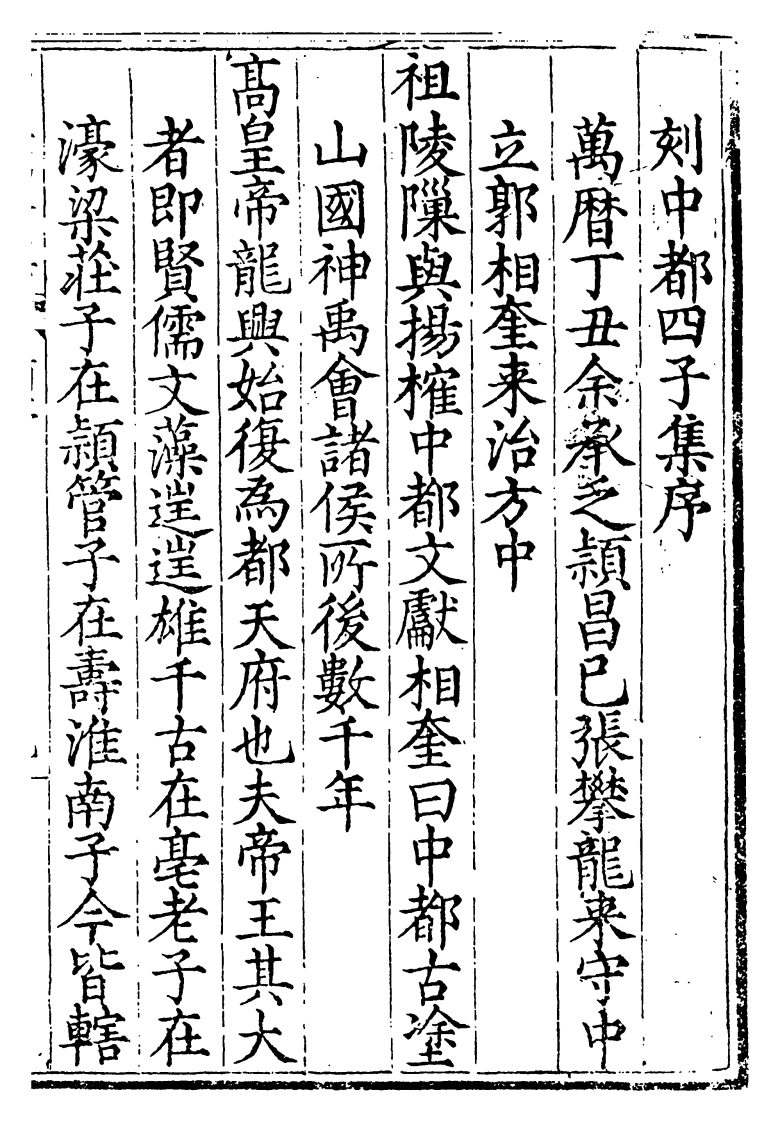 刻中都四子集序
萬曆丁丑余承乏潁昌已張攀龍来守中
立郭相奎来治方中
祖陵隟與揚榷中都文獻相奎曰中都古塗
山國神禹會諸侯所後數千年
高皇帝龍興始復為都天府也夫帝王其大
者即賢儒文藻逞逞雄千古在亳老子在
濠梁莊子在潁管子在壽淮南子今皆轄